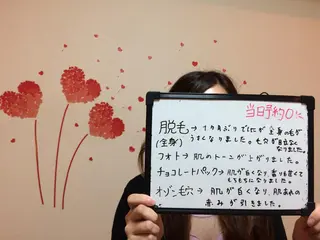 当日予約OK
脱毛→1ヵ月ぶりでしたが全身の毛が
(全身) うすくなりました。毛穴が目立なく
なりました。
フォト→肌のトーンが上がりました。
チョコレートパック→肌が白くなり、香りも甘くて
しあわせになりました。
オゾン毛穴→肌が白くなり、肌あれの
赤みが引きました。